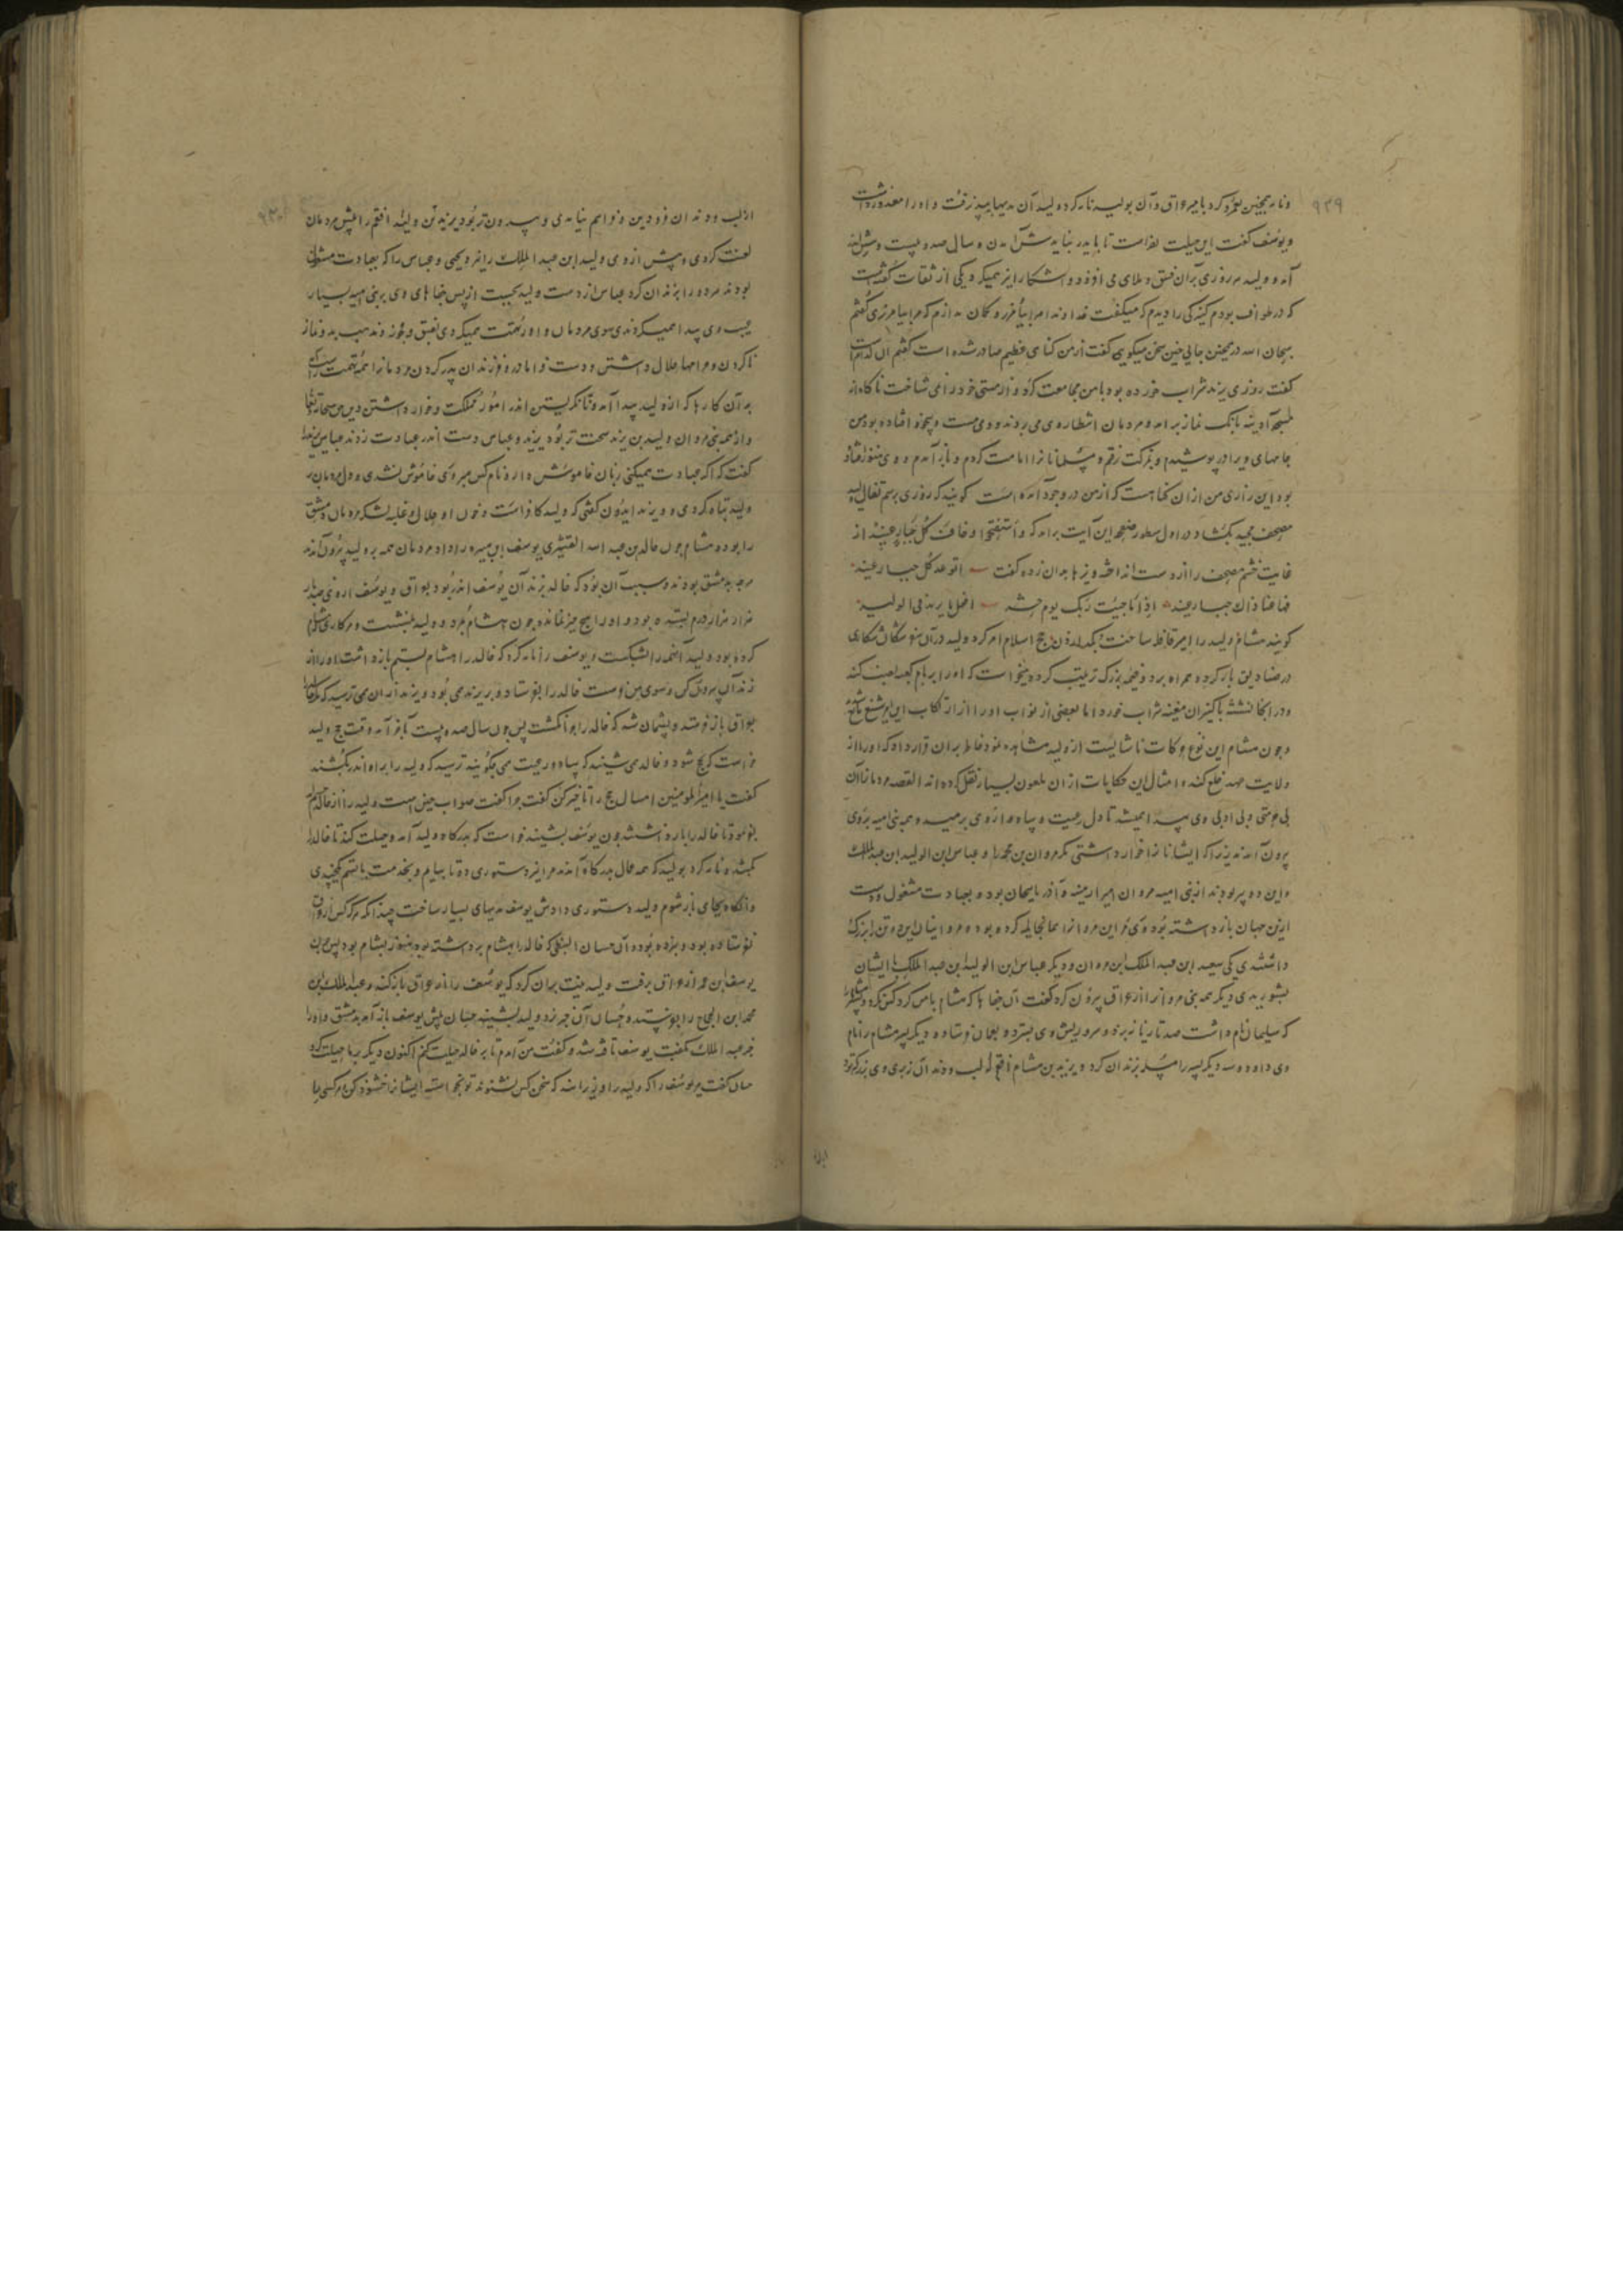 ۹۲۹
و نامه همچنین بعمرو کرد بامیر عراق و آن بولید نامه کرد ولید آن بدیها بپذیرفت و او را معذور داشت
و یوسف گفت این حیلت
آمد و ولید هر روزی بر آن فسق و ملاهی می افزود و آشکارا تر میکرد و یکی از ثقات گفته است
که در طواف بودم کنیزکی را دیدم که میگفت خداوندا مرا بیامرز و گمان ندارم که مرا بیامرزی گفتم
سبحان الله در چنین جایی چنین سخن میگویی گفت از من گناهی عظیم صادر شده است گفتم آن کدام است
گفت روزی یزید شراب خورده بود با من مجامعت کرد و از مستی خود را نمی شناخت ناگاه از
مسجد آدینه بانگ نماز برآمد و مردمان انتظار وی می بردند و وی مست و بیخود افتاده بود من
جامهای ویرا در پوشیدم و برکت رفتم و مسلمانانرا امامت کردم و باز آمدم و وی هنوز افتاده
بود این زاری من از آن گناهست که از من در وجود آمده است گویند که روزی برسم تفال ولید
مصحف مجید بگشاد در اول سطور صفحه این آیت برآمد که واستفتحوا وخاب کل جبار عنید از
غایت خشم مصحف را از دست انداخته و تیرها بدان زده گفت اتوعد کل جبار عنید
فها انا ذاک جبار عنید اذا ما جئت ربک یوم حشر فقل یا رب مزقنی الولید
گویند هشام ولید را امیر قافله ساخت بگذاردن حج اسلام امر کرد ولید در آن سفر سگان شکاری
در صنادیق بار کرده همراه برد و خیمه بزرگ ترتیب کرده میخواست که او را بر بام کعبه نصب کند
و در آنجا نشسته با کنیزان مغنیه شراب خورد اما بعضی از نواب او را از ارتکاب این امر شنیع مانع شدند
و چون هشام این نوع حرکات ناشایست از ولید مشاهده نمود خاطر بدان قرار داد که او را از
ولایت عهد خلع کند و امثال این حکایات از آن ملعون بسیار نقل کرده اند القصه مردمانرا آن
بی حرمتی و بی ادبی وی پدید آمد تا دل رعیت و سپاه از وی برمید و همه بنی امیه بر وی
بیرون آمدند زیرا که ایشانرا خوار داشتی مگر مروان بن محمد را و عباس ابن الولید ابن عبد الملک
و این دو پیر بودند از بنی امیه مروان امیر ارمنیه و آذربایجان بود و بعبادت مشغول و دست
ازین جهان باز داشته بود و
داشتندی یکی سعید ابن عبد الملک ابن مروان و دیگر عباس ابن الولید بن عبد الملک با ایشان
بشوریدی دیگر همه بنی مروانرا از عراق بیرون کرد گفت آن جفاها که هشام با من کرد کس نکرد و هشام را
که سلیمان نام داشت صد تازیانه بزد و سر و ریش وی بسترد و بعمان فرستاد و دیگر پسر هشام را نام
وی داود و سه دیگر پسر را بزندان کرد و یزید بن هشام افقم لب و دندان زیری وی بزرگتر بود
۹۳۰
از لب و دندان فرودین و فراهم نیامدی و بیرون تر بود یزید بن ولید افقم را پیش مردمان
لعنت کردی و پیش از وی ولید ابن عبد الملک را نیز و یحیی و عباس را که بعبادت مشغول
بودند هر دو را بزندان کرد عباس از دست ولید بجست از پس جفاهای وی بر بنی امیه بسیار
عیب وی پیدا همیکردندی سوی مردمان و او را تهمت همیکردی بفسق و فجور و مذهب بد و نماز
ناکردن و حرامها حلال داشتن و دست فرا مادر و فرزندان پدر کردن
بدان کارها که از ولید پیدا آمد و نانگریستن اندر امور مملکت و خوار داشتن دین
و از همه بنی مروان ولید بن یزید سخت تر بود یزید و عباس دست اندر عبادت زدند عباس یزید را
گفت که اگر عبادت همیکنی زبان خاموش دار و نام کس مبر وی خاموش نشدی و دل مردمان بر
ولید تباه کردی و یزید ایدون گفتی که ولید کافر است و خون او حلال و غلبه لشکر مردمان دمشق
را بود و هشام چون خالد بن عبد الله القشیری یوسف ابن هبیره را داد مردمان همه بر ولید بیرون آمدند
هر چه بدمشق بودند و سبب آن بود که خالد بزندان یوسف اندر بود بعراق و یوسف از وی صد بار
هزار هزار درم بستده بود و او را هیچ چیز نمانده چون هشام بمرد و ولید بنشست و هر کاری که هشام
کرده بود ولید آنهمه را بشکست و یوسف را نامه کرد که خالد را هشام بستم باز داشت او را از
زندان بیرون کن و سوی من فرست خالد را بفرستاد و بر یزید می بود و یزید از آن می ترسید که مگر خالد را
بعراق باز فرستد و پشیمان شد که خالد را چرا نکشت پس چون سال صد و بیست بآخر آمد وقت حج ولید
خواست که بحج شود و خالد می شنید که سپاه و رعیت می چگویند ترسید که ولید را براه اندر بکشند
گفت یا امیر المومنین امسال حج را تاخیر کن گفت چرا گفت صواب چنین است ولید را از خالد خشم
بفرمود تا خالد را باز داشتند چون یوسف بشنید خواست که بدرگاه ولید آمد و حیلت کند تا خالد را
بکشد و نامه کرد بولید که همه عمال بدرگاه آمدند مرا نیز دستوری ده تا بیایم و بخدمت باستم یکچندی
و آنگاه بجای باز شوم ولید دستوری دادش یوسف هدیهای بسیار ساخت چندانکه هرگز کس از آن
نفرستاده بود و نبرده بود و آن حسان النبطی که خالد را بهشام برداشته بود هنوز بشام بود پس چون
یوسف ابن عمر از عراق برفت ولید نیت بدان کرد که یوسف را از عراق باز کند و عبد الملک بن
محمد ابن الحجاج را بفرستد و حسان آن خبر زود ولید بشنید حسان پیش یوسف باز آمد بدمشق و او را
خبر عبد الملک بگفت یوسف تافته شد و گفت من آمدم تا بر خالد حیلت کنم اکنون دیگر بر ما حیلت کرد
حسان گفت مر یوسف را که ولید را وزیرانند که سخن کس نشنوند تو نخست ایشانرا خشنود کن و هر کسی را